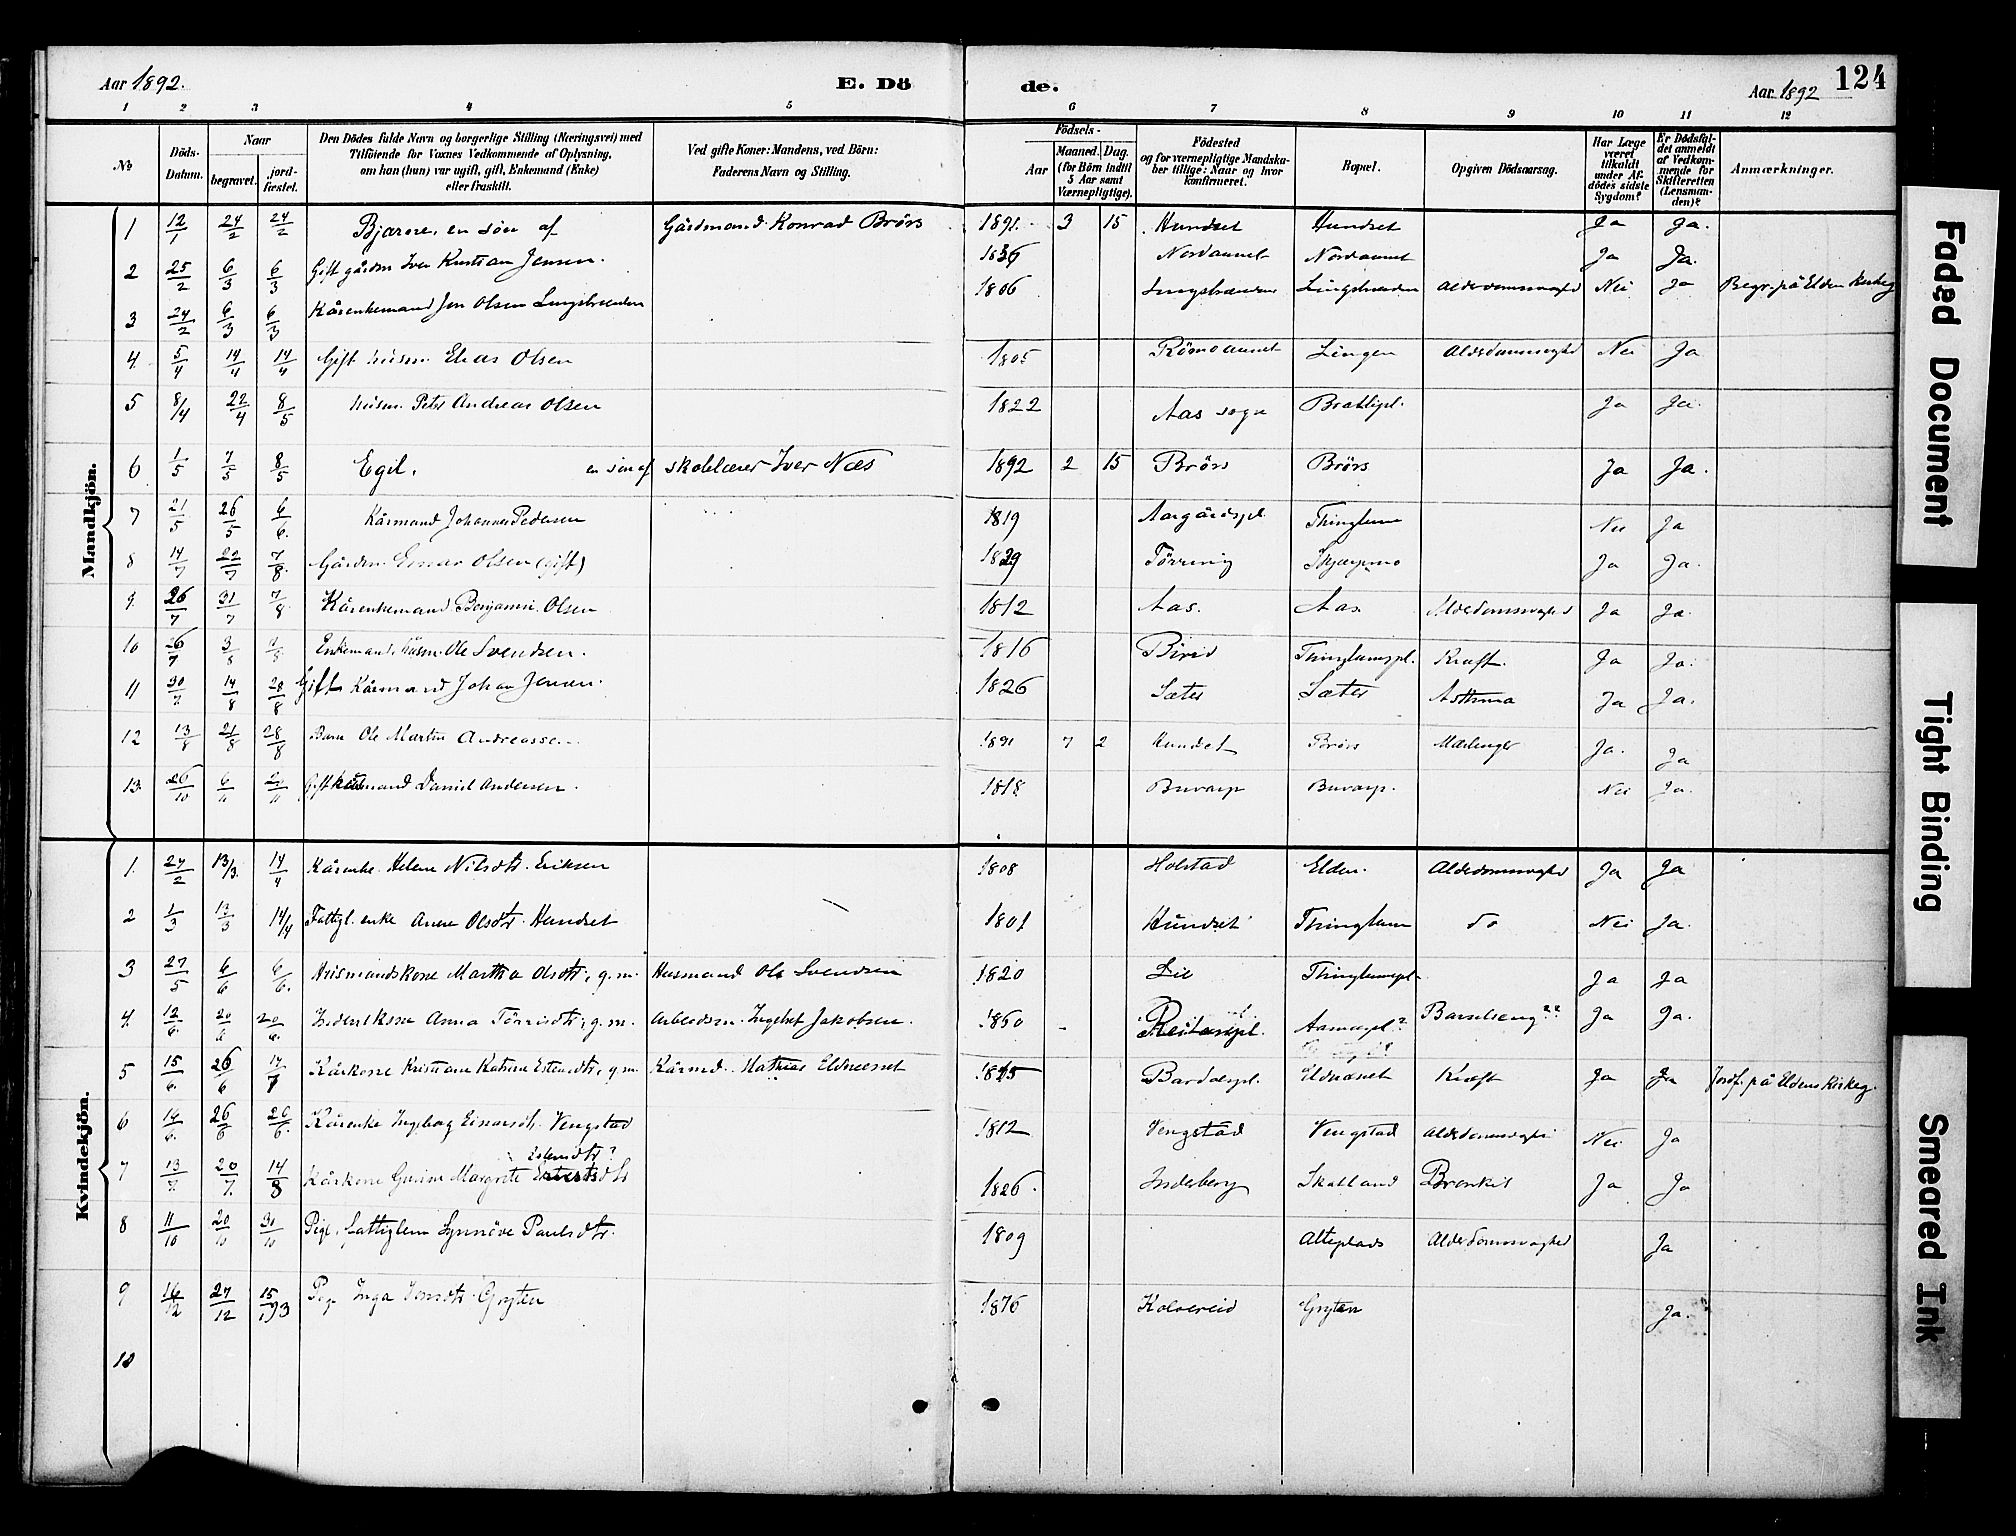 Aar 1892. E. Dö de. Aar 1892 124
1 2 3 4 5 6 7 8 9 10 11 12
No
Döds-Datum.
Naar
begravet. jord-fæstet.
Den Dödes fulde Navn og borgerlige Stilling (Næringsvei) med
Tilföiende for Voxnes Vedkommende af Oplysning,
om han (hun) var ugift, gift, Enkemand (Enke)
eller fraskilt.
Ved gifte Koner: Mandens, ved Börn:
Faderens Navn og Stilling.
Födsels-
Aar Maaned. Dag.
(for Börn indtil
5 Aar samt
Værnepligtige).
Födested
og for værnepligtige Mandska-
ber tillige: Naar og hvor
konfirmeret.
Bopæl.
Opgiven Dödsaarsag.
Har Læge
været
tilkaldt
under Af-
dödes sidste
Sygdom?
Er Dödsfal-
det anmeldt
af Vedkom-
mende for
Skifteretten
(Lensman-
den)?
Anmærkninger.
Mandkjön.
1 12/1 24/2 24/2 Bjarne, en sön af Gårdmand Konrad Brörs 1891 3 15 Hundset Hundset Ja Ja.
2 25/2 6/3 6/3 Gift gårdm Iver Kristian Jensen. 1836 Nordannet Nordannet Ja Ja.
3 24/2 6/3 6/3 Kårenkemand Jon Olsen 1806 Alderdomssvaghed Nei Ja Begr. på Elden Kirkeg
4. 5/4 14/4 14/4 Gift husm. Elias Olsen 1805 Lingen Alderdomssvaghed Nei Ja
5 8/4 22/4 8/5 husm. Peter Andreas Olsen 1822 Aas sogn Ja Ja.
6 1/5 7/5 8/5 Egil, en sön af skolelærer Iver Næs 1892 2 15 Brörs Brörs Ja Ja.
7 21/5 26/5 6/6. Kårmand Johannes Pedersen 1819 Aargårdspl. Thinglum Nei Ja
8 14/7 20/7 7/8. Gårdm. Einar Olsen (gift) 1839 Törring Ja Ja.
9. 26/7 31/7 7/8. Kårenkemand Benjamin Olsen 1812 Aas. Aas. Alderdomssvaghed Ja Ja.
10 26/7 3/8 Enkemand, husm. Ole Svendsen. 1816 Thinglumspl. Kræft. Ja Ja.
11 30/7 14/8 28/8 Gift Kårmand Johan Jensen. 1826 Sæter Sæter Asthma Ja Ja.
12 13/8 21/8 28/8 Barn Ole Martin Andreassen 1891 7 2 Hundset Brörs Mæslinger Ja. Ja
13. 26/10 6/11 Gift kårmand Daniel Andersen. 1818 Buvarp Buvarp. Nei Ja.
Kvindekjön.
1. 27/2 13/3. 14/4 Kårenke. Helene Nilsdtr. Eriksen 1808 Holstad Elden. Alderdomssvaghed Ja Ja
2 1/3 13/3 14/4 Fattigl. enke Anne Olsdtr. Hundset 1801 Hundset Thinglum do Nei Ja.
3 27/5 6/6 6/6. Husmandskone Martha Olsdtr, g.m. Husmand Ole Svendsen 1820 Lie Thinglumspl. Ja Ja
4. 12/6. 20/6 20/6. Anna g.m. Arbeidsm. Ingebret Jakobsen. 1860 Aasmopl? Barselseng?? Ja Ja.
5 15/6. 26/6 17/7 Kårkone Kristiane Katrine Estensdtr, g.m. Kårmd. Mathias Eldnesset 1825 Bardalspl. Eldnæset Kræft Ja Ja Jordf. på Eldens Kirkeg.
6 14/6. 26/6 26/6. Kårenke Ingeborg Einarsdtr. Vengstad 1812 Vengstad Vengstad Alderdomssvaghed Nei Ja
Estensdtr?
7 13/7. 20/7. 14/8 Kårkone Margrete 1826. Inderberg Skatland Bronkit Ja Ja
8 11/10 20/10 31/10 Pige, fattiglem Synnöve Paulsdtr. 1809 Alteplads Alderdomssvaghed Ja
9 16/12 27/12 15/1 93 Pige Inga Jensdtr. Gryten 1876 Kolvereid Gryten Ja.
10
Faded Document
Tight Binding
Smeared Ink